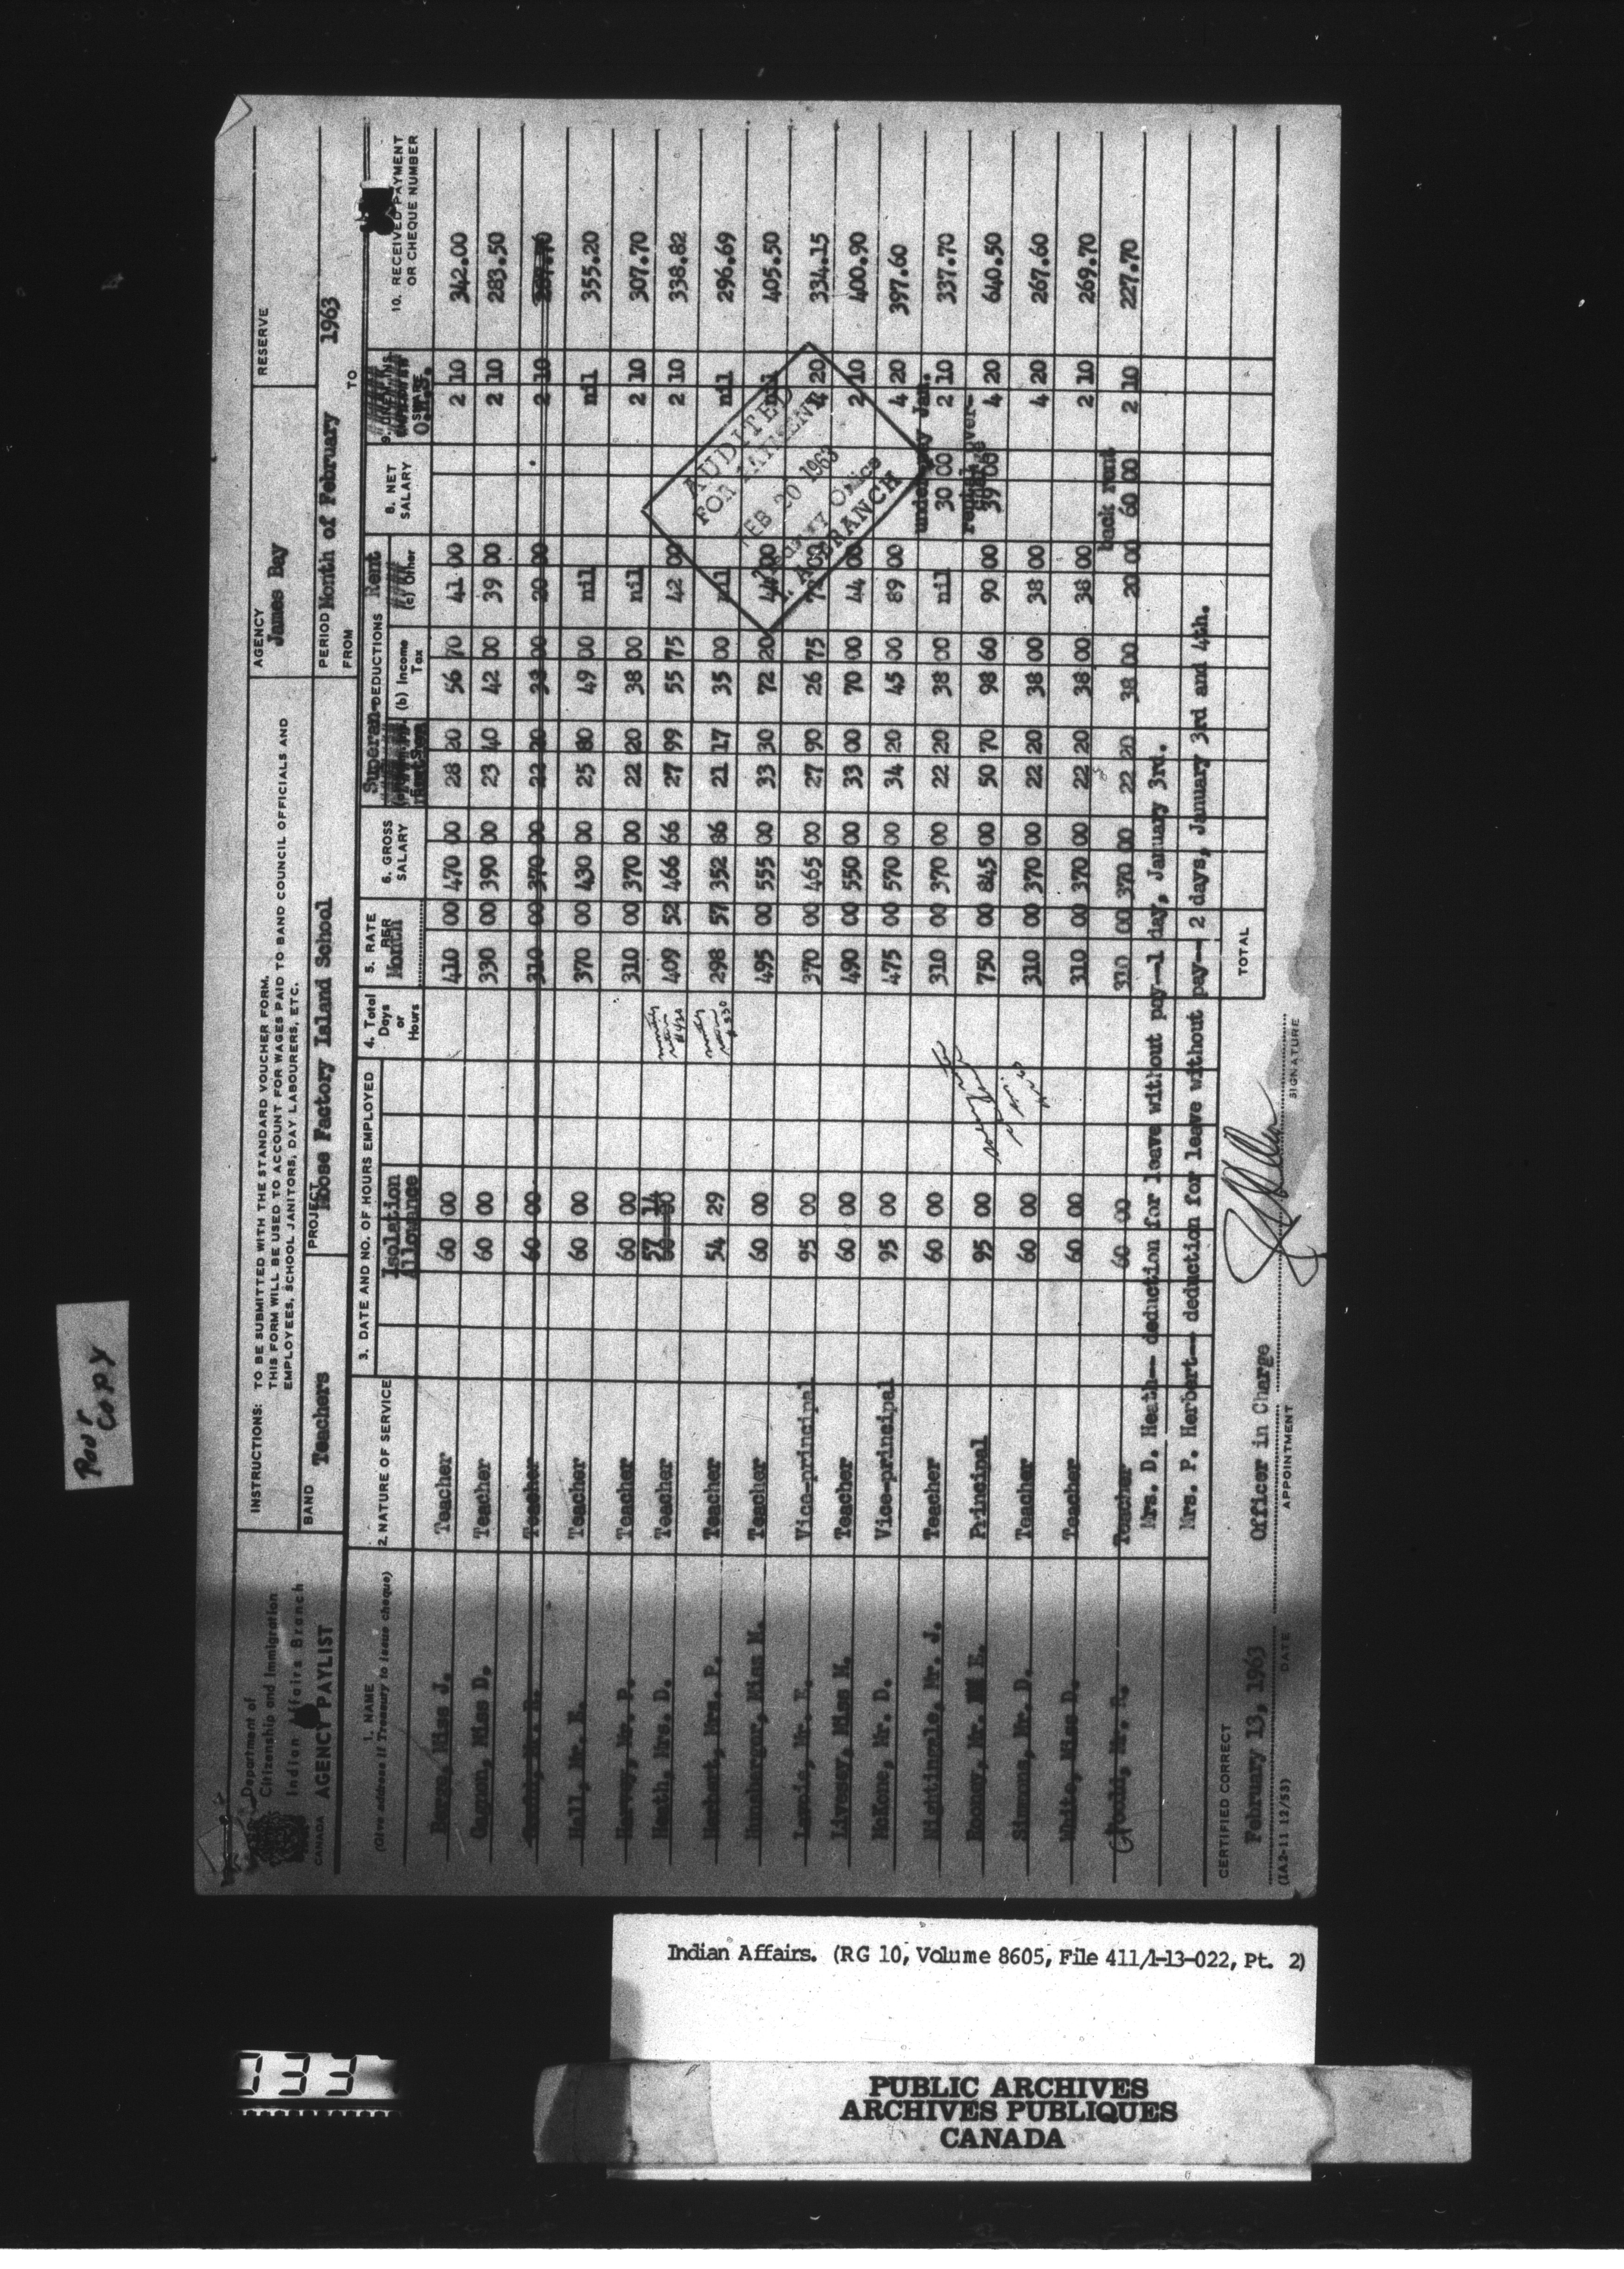 Poor
Copy
Department of
Citizenship and Immigration
Indian Affairs Branch
CANADA
AGENCY PAYLIST
INSTRUCTIONS: TO BE SUBMITTED WITH THE STANDARD VOUCHER FORM.
THIS FORM WILL BE USED TO ACCOUNT FOR WAGES PAID TO BAND COUNCIL OFFICIALS AND
EMPLOYEES, SCHOOL JANITORS, DAY LABOURERS, ETC.
AGENCY
James Bay
RESERVE
BAND Teachers
PROJECT Moose Factory Island School
PERIOD Month of February 1963
FROM TO
1. NAME
(Give address if Treasury to issue cheque)
2. NATURE OF SERVICE
3. DATE AND NO. OF HOURS EMPLOYED
Isolation
Allowance
4. Total Days or Hours
5. RATE PER Month
6. GROSS SALARY
DEDUCTIONS
Superan-
(b) Income Tax
Rent
(c) Other
8. NET SALARY
SHARE
10. RECEIVED PAYMENT
OR CHEQUE NUMBER
Miss J. Teacher 60 00 410 00 470 00 28 20 56 70 41 00 2 10 342.00
Gagnon, Miss D. Teacher 60 00 330 00 390 00 23 40 42 00 39 00 2 10 283.50
Teacher 60 00 310 00 370 00 22 20 38 00 20 00 2 10
Hall, Mr. E. Teacher 60 00 370 00 430 00 25 80 49 00 nil nil 355.20
Harvey, Mr. P. Teacher 60 00 310 00 370 00 22 20 38 00 nil 2 10 307.70
Heath, Mrs. D. Teacher 57 14 409 52 466 66 27 99 55 75 42 00 2 10 338.82
Herbert, Mrs. P. Teacher 54 29 298 57 352 86 21 17 35 00 nil nil 296.69
Hunsberger, Miss M. Teacher 60 00 495 00 555 00 33 30 72 20 44 00 nil 405.50
Mr. E. Vice-principal 95 00 370 00 465 00 27 90 26 75 72 00 4 20 334.15
Livesey, Miss M. Teacher 60 00 490 00 550 00 33 00 70 00 44 00 2 10 400.90
McKone, Mr. D. Vice-principal 95 00 475 00 570 00 34 20 45 00 89 00 4 20 397.60
underpay Jan.
Nightingale, Mr. J. Teacher 60 00 310 00 370 00 22 20 38 00 nil 30 00 2 10 337.70
Rooney, Mr. E. Principal 95 00 750 00 845 00 50 70 98 60 90 00 39 00 4 20 640.50
Simmons, Mr. D. Teacher 60 00 310 00 370 00 22 20 38 00 38 00 4 20 267.60
White, Miss D. Teacher 60 00 310 00 370 00 22 20 38 00 38 00 2 10 269.70
back rent
Teacher 60 00 310 00 370 00 22 20 38 00 20 00 60 00 2 10 227.70
Mrs. D. Heath-- deduction for leave without pay--1 day, January 3rd.
Mrs. P. Herbert-- deduction for leave without pay-- 2 days, January 3rd and 4th.
AUDITED
FOR PAYMENT
FEB 20 1963
BRANCH
TOTAL
CERTIFIED CORRECT
February 13, 1963
DATE
Officer in Charge
APPOINTMENT
SIGNATURE
(IA 2-11 12/53)
Indian Affairs. (RG 10, Volume 8605, File 411/1-13-022, Pt. 2)
033
PUBLIC ARCHIVES
ARCHIVES PUBLIQUES
CANADA